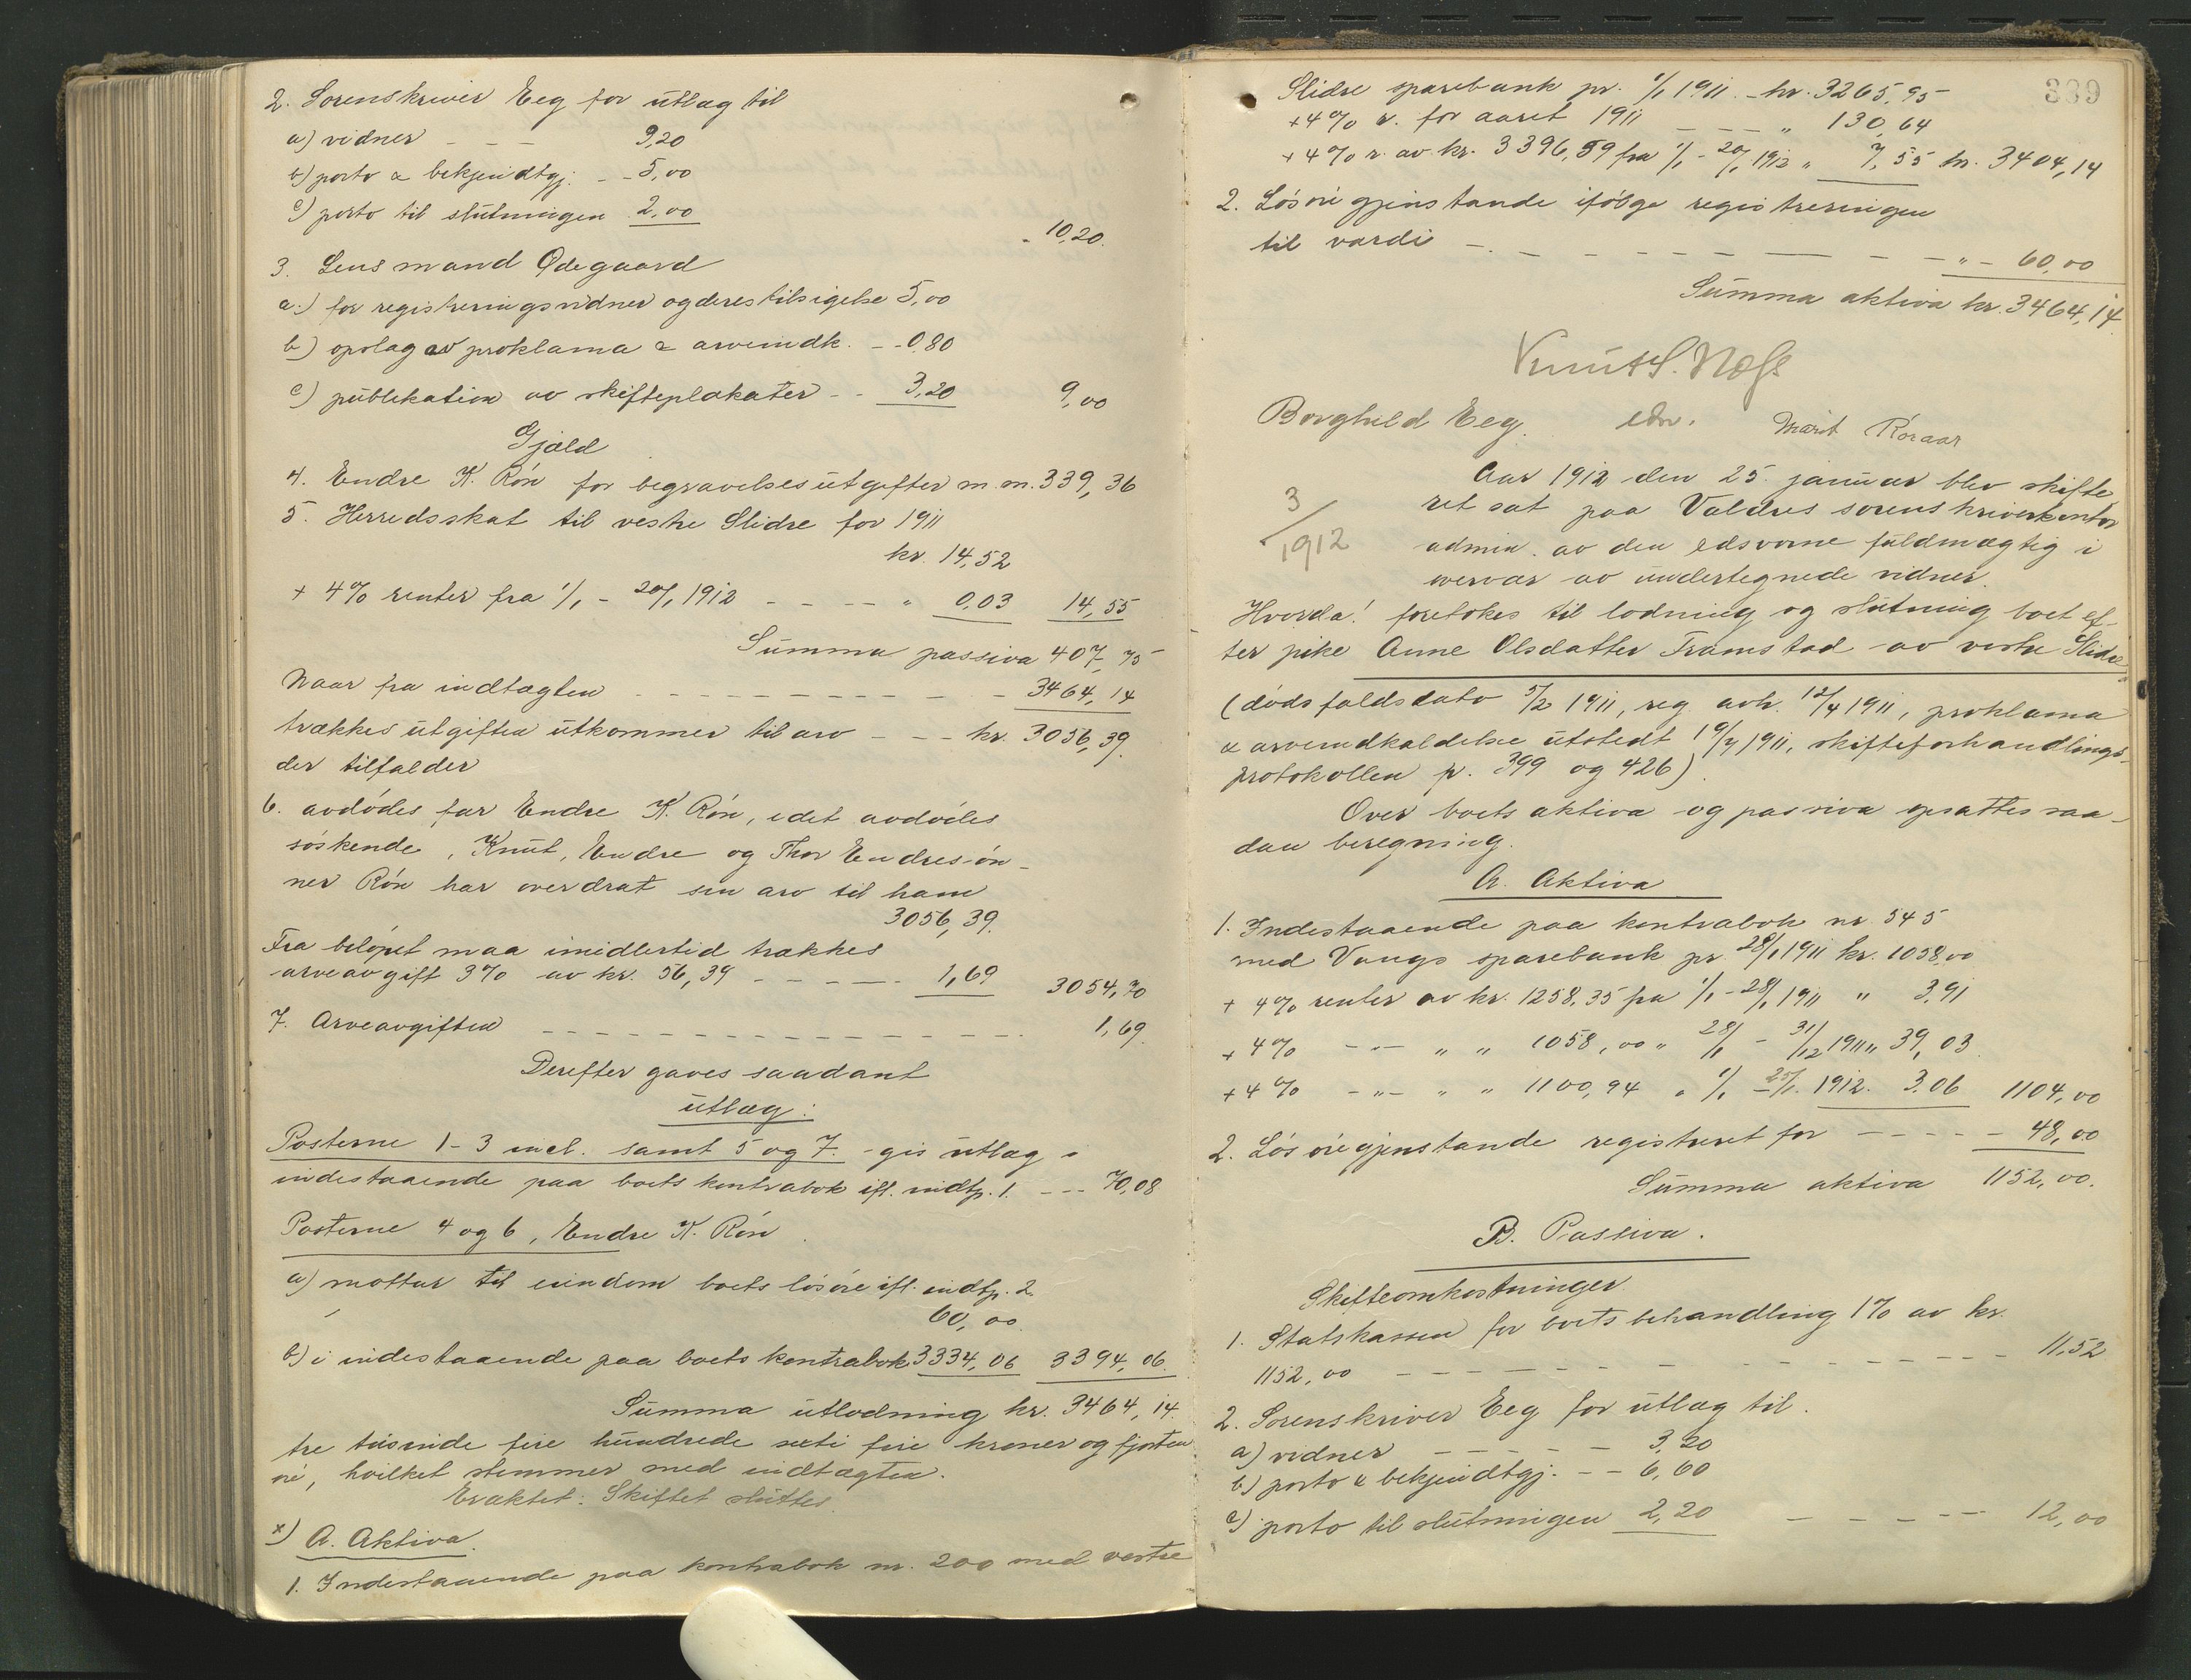 2. Sorenskriver Eeg for utlæg til
a) vidner - - - 3,20
b) porto & bekjendtgj. - - 5,00
c) porto til slutningen 2,00
" 10,20.
3. Lensmand Ødegaard
a) for registreringsvidner og deres tilsigelse 5,00
b) opslag av proklama & arveindk. - - 0,80
c) publikation av skifteplakater - - 3,20 9,00
Gjæld
4. Endre K. Røn for begravelsesutgifter m.m. 339,36
5. Herredsskat til vestre Slidre for 1911
kr. 14,52
+ 4% renter fra 1/1 - 20/1 1912 - - - - " 0,03 14,55
Summa passiva 407,75
Naar fra indtægten - - - - - - - - - 3464,14
trækkes utgiften utkommer til arv - - - kr. 3056,39.
der tilfalder
6. avdødes far Endre K. Røn, idet avdødes
søskende, Knut, Endre og Thor Endresøn-
ner Røn har overdrat sin arv til ham
3056,39.
Fra beløpet maa imidlertid trækkes
arveavgift 3% av kr. 56,39 - - - - - 1,69 3054,70
7. Arveavgiften - - - - - - - - - - - - - 1,69.
Derefter gaves saadant
utlæg:
Posterne 1-3 incl. samt 5 og 7. - gis utlæg i
indestaaende paa boets kontrabok ifl. indtp. 1. - - - 70,08
Posterne 4 og 6, Endre K. Røn
a) mottar til eiendom boets løsøre ifl. indtp. 2.
60,00.
b) i indestaaende paa boets kontrabok 3334,06 3394,06.
Summa utlodning kr. 3464,14.
tre tusinde fire hundrede seksti fire kroner og fjorten
øre, hvilket stemmer med indtægten.
Eragtet: Skiftet sluttes.
x) A. Aktiva.
1. Indestaaende paa kontrabok nr. 200 med vestre
339
Slidre sparebank pr. 1/1 1911 - kr. 3265,95
+ 4% r. for aaret 1911 - - - - " 130,64
+ 4% r. av kr. 3396,59 fra 1/1 - 20/1 1912 " 7,55 kr. 3404,14
2. Løsøregjenstande ifølge registreringen
til værdi - - - - - - - - - - " - 60,00
Summa aktiva kr. 3464,14.
Knut S.
Borghild Eeg. edsv. Marit Roraar
Aar 1912 den 25. januar blev skifte
3/1912
ret sat paa Valdres sorenskriverkontor
admin. av den edsvorne fuldmægtig i
overvær av undertegnede vidner.
Hvorda! foretokes til lodning og slutning boet ef-
ter pike Anne Olsdatter Tramstad av vestre Slidre
(dødsfaldsdato 5/2 1911, reg. avh. 12/4 1911, proklama
& arveindkaldelse utstedt 19/4 1911, skifteforhandlings-
protokollen p. 399 og 426).
Over boets aktiva og passiva opsattes saa-
dan beregning.
A. Aktiva
1. Indestaaende paa kontrabok nr. 545
med Vangs sparebank pr. 28/1 1911 kr. 1058,00
+ 4% renter av kr. 1258,35 fra 1/1 - 28/1 1911 " 3,91
+ 4% - " - " " 1058,00 " 28/1 - 31/12 1911 " 39,03.
+ 4% - " - " " 1100,94 " 1/1 - 25/1. 1912. 3,06 1104,00
2. Løsøregjenstande registreret for - - - - - 48,00
Summa aktiva 1152,00.
B. Passiva.
Skifteomkostninger
1. Statskassen for boets behandling 1% av kr.
1152,00 - - - - - - - - - - - - 11,52
2. Sorenskriver Eeg for utlæg til.
a) vidner - - - - - - 3,20
b) porto & bekjendtgj. - - 6,60
c) porto til slutningen 2,20 - - - - - 12,00